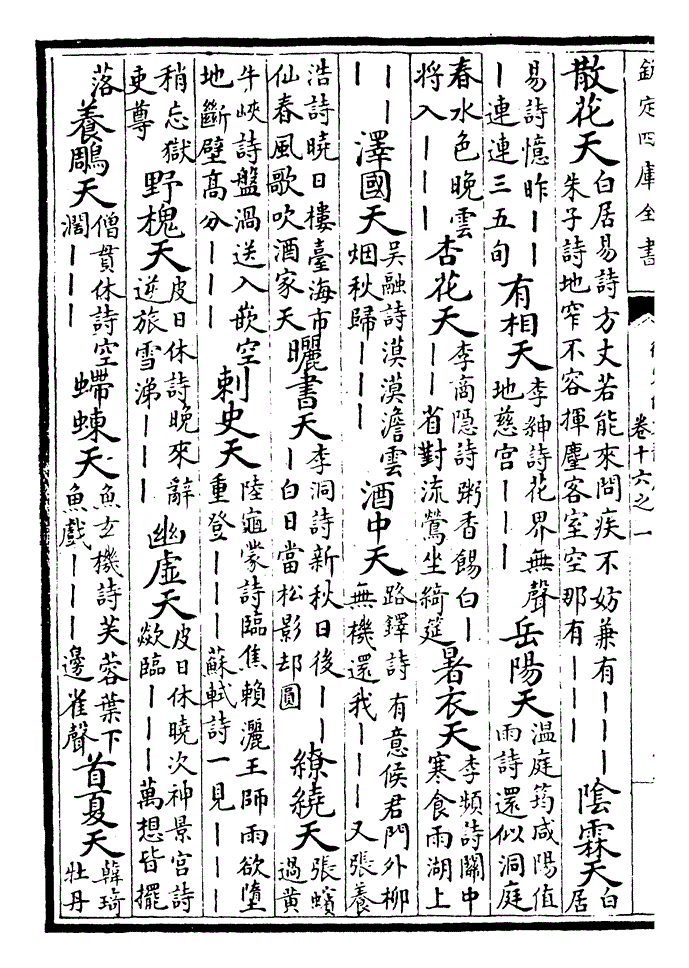 欽定四庫全書
卷十六之一
散花天 白居易詩方丈若能來問疾不妨兼有｜｜｜朱子詩地窄不容揮麈客室空那有｜｜｜ 陰霖天 白居
易詩憶昨｜｜｜連連三五旬 有相天 李紳詩花界無聲地慈宫｜｜｜ 岳陽天 温庭筠咸陽值雨詩還似洞庭
春水色晚雲將入｜｜｜ 杏花天 李商隠詩粥香餳白｜｜｜省對流鶯坐綺筵 暑衣天 李頻詩關中寒食雨湖上
｜｜｜ 澤國天 吳融詩漠漠澹雲烟秋歸｜｜｜ 酒中天 路鐸詩有意侯君門外柳無機還我｜｜｜又張養
浩詩曉日樓臺海市仙春風歌吹酒家天 曬書天 李洞詩新秋日後｜｜｜白日當松影却圓 繚繞天 張蠙過黄
牛峽詩盤渦送入嵌空地斷壁髙分｜｜｜ 刺史天 陸龜蒙詩臨焦賴灑王師雨欲墮重登｜｜｜蘇軾詩一見｜｜｜
稍忘獄吏尊 野槐天 皮日休詩晚來辭逆旅雪涕｜｜｜ 幽虛天 皮日休曉次神景宫詩歘臨｜｜｜萬想皆擺
落 養鵰天 僧貫休詩空濶｜｜｜ 螮蝀天 魚玄機詩芙蓉葉下魚戲｜｜｜邊雀聲 首夏天 韓琦牡丹